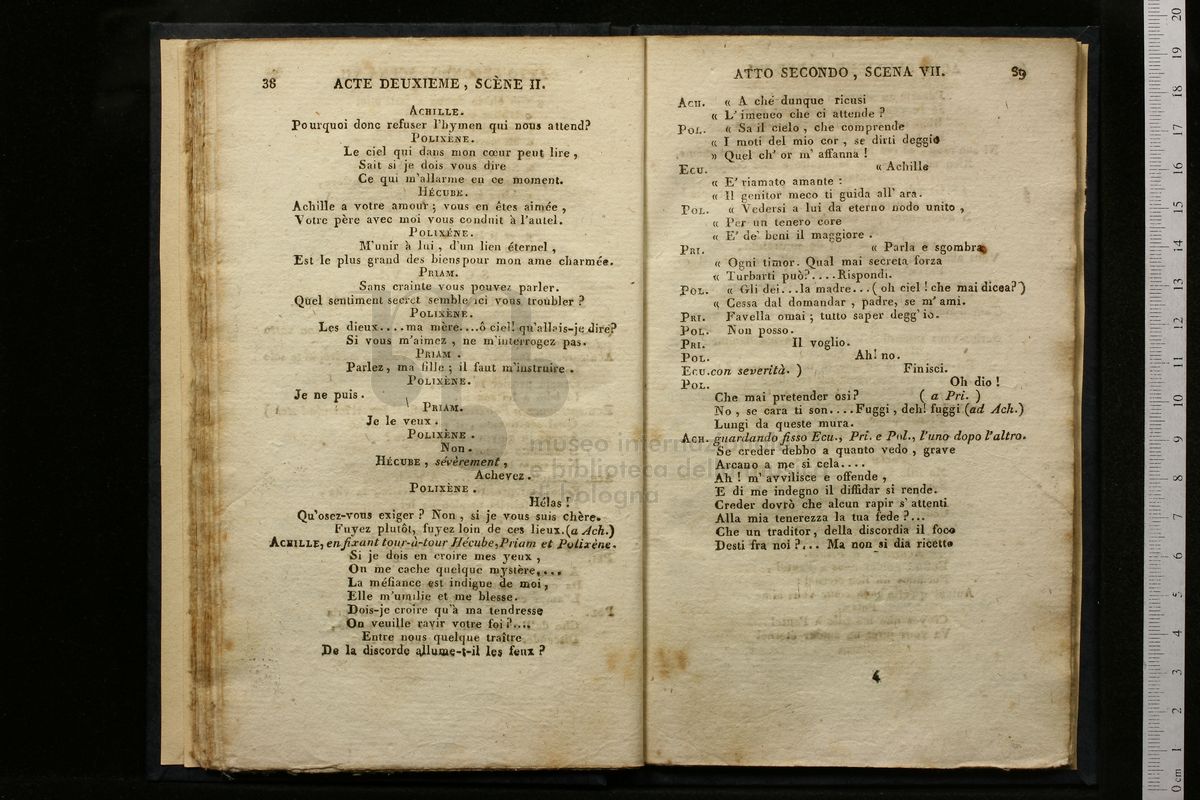 38 ACTE DEUXIEME, SCÈNE II.
ACHILLE.
Pourquoi donc refuser l'hymen qui nous attend?
POLIXÈNE.
Le ciel qui dans mon cœur peut lire,
Sait si je dois vous dire
Ce qui m'allarme en ce moment.
HÉCUBE.
Achille a votre amour; vous en êtes aimée,
Votre père avec moi vous conduit à l'autel.
POLIXÈNE.
M'unir à lui, d'un lien éternel,
Est le plus grand des biens pour mon ame charmée.
PRIAM.
Sans crainte vous pouvez parler.
Quel sentiment secret semble ici vous troubler?
POLIXÈNE.
Les dieux....ma mère....ô ciel! qu'allais-je dire?
Si vous m'aimez, ne m'interrogez pas.
PRIAM.
Parlez, ma fille; il faut m'instruire.
POLIXÈNE.
Je ne puis.
PRIAM.
Je le veux.
POLIXÈNE.
Non.
HÉCUBE, sévèrement,
Achevez.
POLIXÈNE.
Hélas!
Qu'osez-vous exiger? Non, si je vous suis chère.
Fuyez plutôt, fuyez loin de ces lieux. (a Ach.)
ACHILLE, en fixant tour-à-tour Hécube, Priam et Polixène.
Si je dois en croire mes yeux,
On me cache quelque mystère....
La méfiance est indigne de moi,
Elle m'umilie et me blesse.
Dois-je croire qu'à ma tendresse
On veuille ravir votre foi?....
Entre nous quelque traître
De la discorde allume-t-il les feux?
ATTO SECONDO, SCENA VII. 39
ACH. « A ché dunque ricusi
« L' imeneo che ci attende?
POL. « Sa il cielo, che comprende
« I moti del mio cor, se dirti deggio
» Quel ch' or m' affanna!
ECU. « Achille
« E' riamato amante:
« Il genitor meco ti guida all' ara.
POL. « Vedersi a lui da eterno nodo unito,
« Per un tenero core
« E' de' beni il maggiore.
PRI. « Parla e sgombra
« Ogni timor. Qual mai secreta forza
« Turbarti può?....Rispondi.
POL. « Gli dei...la madre...(oh ciel! che mai dicea?)
« Cessa dal domandar, padre, se m' ami.
PRI. Favella omai; tutto saper degg' io.
POL. Non posso.
PRI. Il voglio.
POL. Ah! no.
ECU. con severità. ) Finisci.
POL. Oh dio!
Che mai pretender osi? ( a Pri. )
No, se cara ti son....Fuggi, deh! fuggi (ad Ach.)
Lungi da queste mura.
ACH. guardando fisso Ecu., Pri. e Pol., l'uno dopo l'altro.
Se creder debbo a quanto vedo, grave
Arcano a me si cela....
Ah! m' avvilisce e offende,
E di me indegno il diffidar si rende.
Creder dovrò che alcun rapir s' attenti
Alla mia tenerezza la tua fede?...
Che un traditor, della discordia il foco
Desti fra noi?... Ma non si dia ricetto
4
museo internazionale
e biblioteca della musica
di bologna
0 cm 1 2 3 4 5 6 7 8 9 10 11 12 13 14 15 16 17 18 19 20